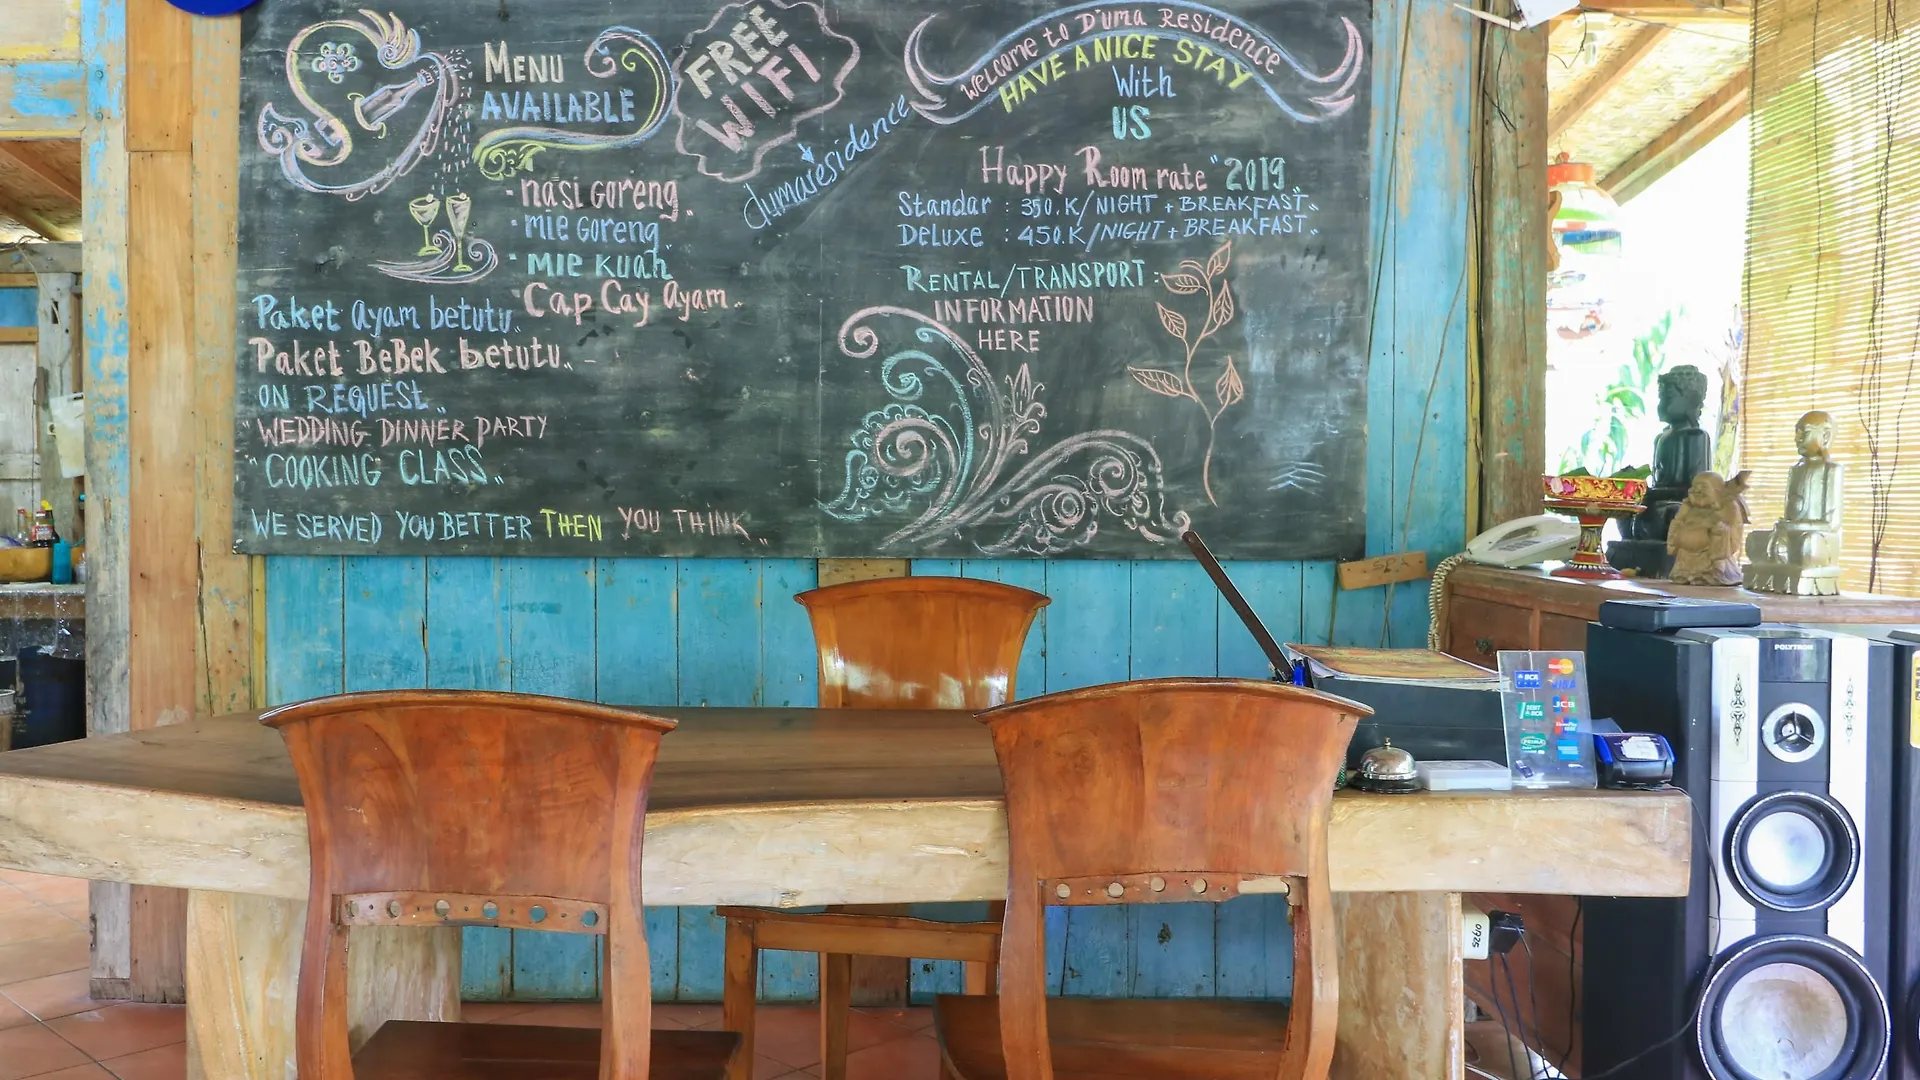 MENU
AVAILABLE
- nasi Goreng "
- mie Goreng "
- mie kuah
- Cap Cay ayam "
Paket ayam betutu "
Paket BeBek betutu "
ON REQUEST "
"WEDDING DINNER PARTY
"COOKING CLASS "
WE SERVED YOU BETTER THEN YOU THINK "
FREE
WIFI
dumaresidence
Welcome to D'uma Residence
HAVE A NICE STAY
With
US
Happy Room rate "2019"
Standar : 350.K/NIGHT + BREAKFAST "
DELUXE : 450.K/NIGHT + BREAKFAST "
RENTAL/TRANSPORT :
INFORMATION
HERE
SPA
POLYTRON
BCA
MasterCard
VISA
JCB